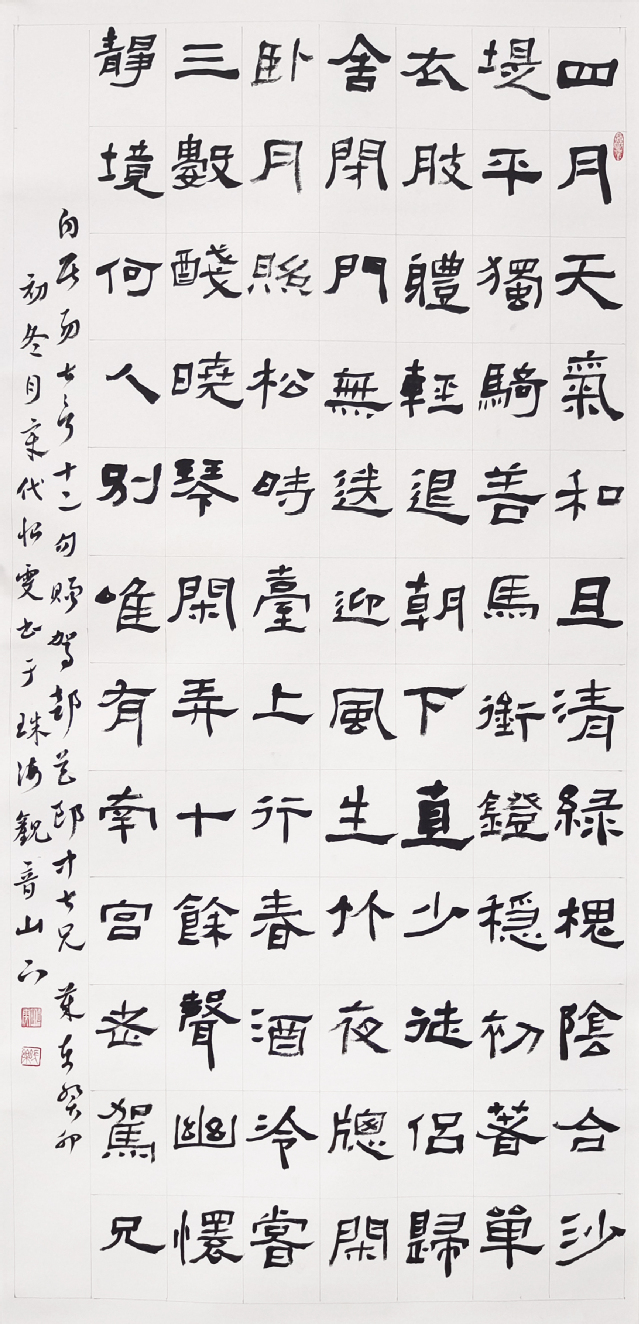 四月天氣和且清綠槐陰合沙
堤平獨騎善馬銜鐙穩初著單
衣肢體輕退朝下直少徒侶歸
舍閉門無送迎風生竹夜牕閑
卧月照松時臺上行春酒冷嘗
三數醆曉琴閑弄十餘聲幽懷
靜境何人別唯有南宮老駕兄
白居易七言十二句贈駕部吾郎中七兄 歲在癸卯
初冬月 代怡雯书于珠海觀音山下